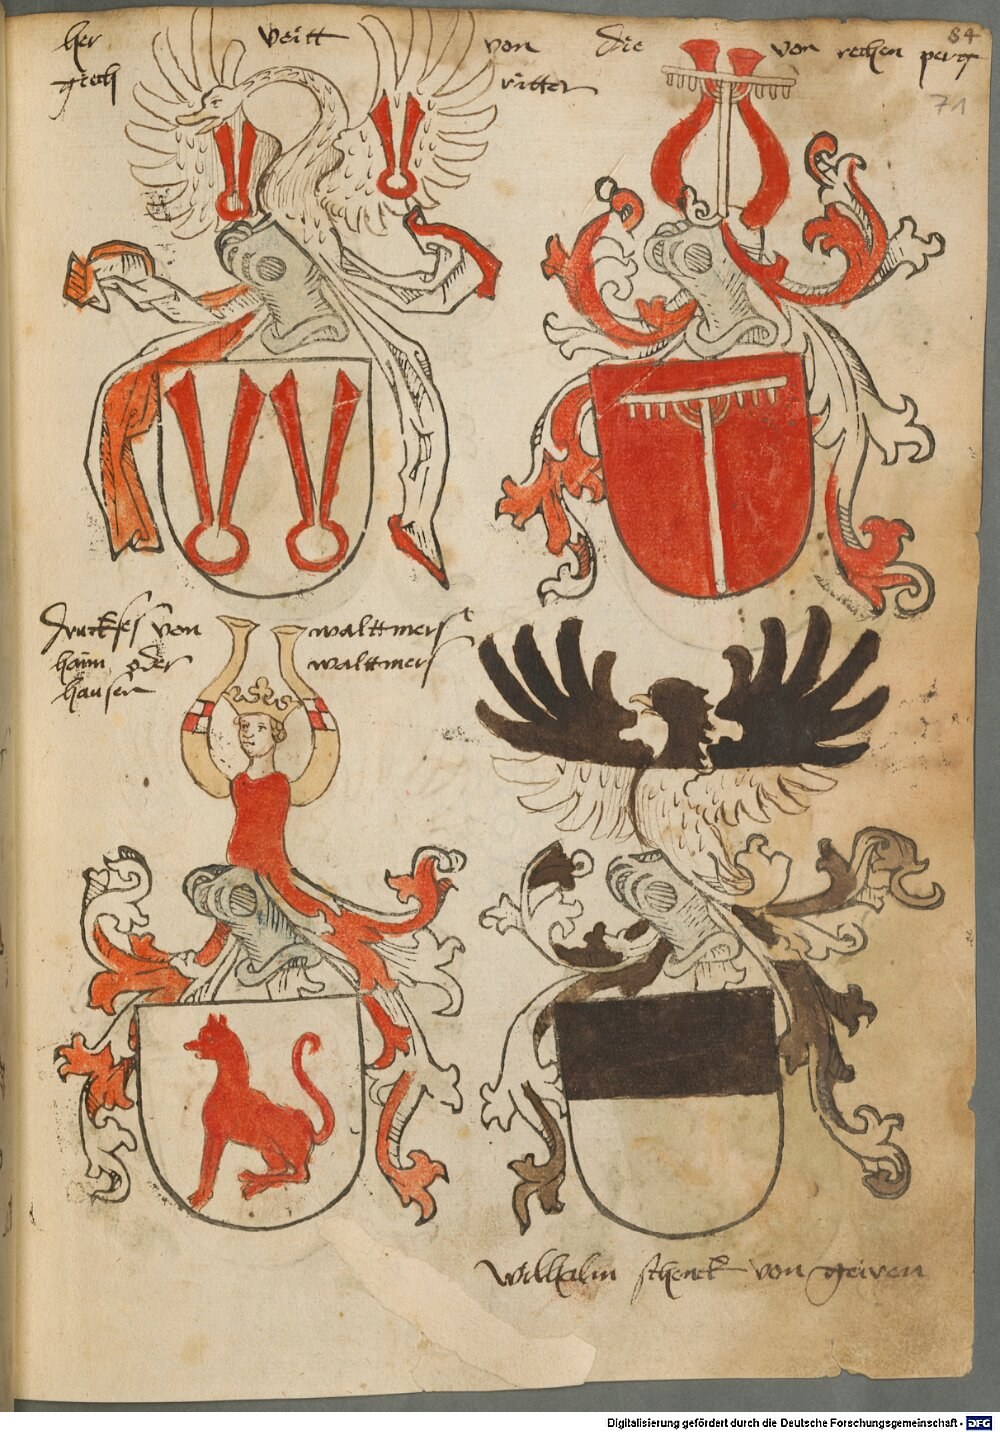 her veitt von
giech ritter
die von rechen perg
84
71
Druckses von walttmers
haim oder walttmers
hausen
wilhalm schenck von geiren
Digitalisierung gefördert durch die Deutsche Forschungsgemeinschaft - DFG